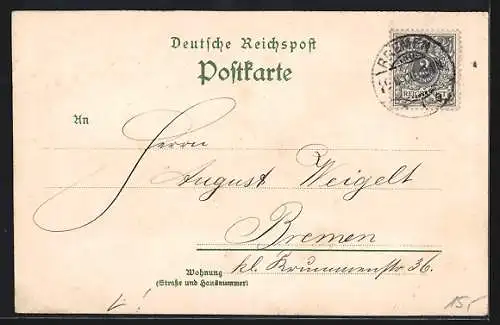 Deutsche Reichspost
Postkarte
BREMEN
An
Herrn
August Weigelt
Bremen
Wohnung
(Straße und Hausnummer)
kl. Krummenstr. 36.
15,-